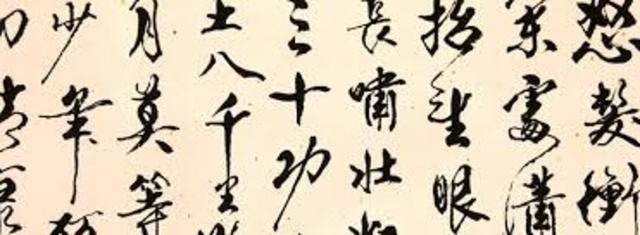 怒髮衝
處瀟
抬望眼
長嘯壯
三十功
土八千里
月莫等
少年
切靖